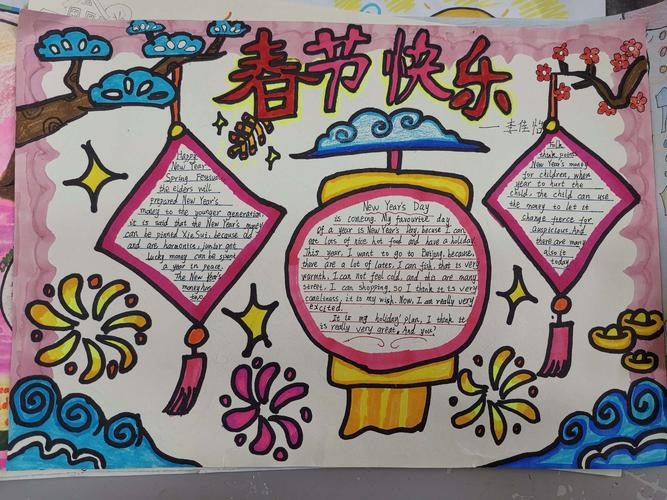 春节快乐
一李佳怡
Happy
New Year
Spring Festival
the elders will
prepared New Year's
money to the younger generation,
it is said that the New Year's money
can be pinned Xie Sui, because
and are harmonics, junior got
lucky money can be spent
a year in peace.
The New Year's
money has
two
New Year's Day
is comeing. My favourite day
of a year is New Year's Day, becuse I can
eat lots of nice hot food and have a holiday.
This year, I want to go to Beijing, because,
there are a lot of lates, I can fish, that is very
warmth. I can not feel cold, and this are many
street. I can shopping, so I think it is very
careliness, it is my wish. Now, I am really very
excited.
It is my holiday' plan, I think it
is really very great. And you?
Folk
think point
New Year's money
for children, when
year to hurt the
child, the child can use
the money to let it
change fierce for
auspicious. And
there are many
also it
today